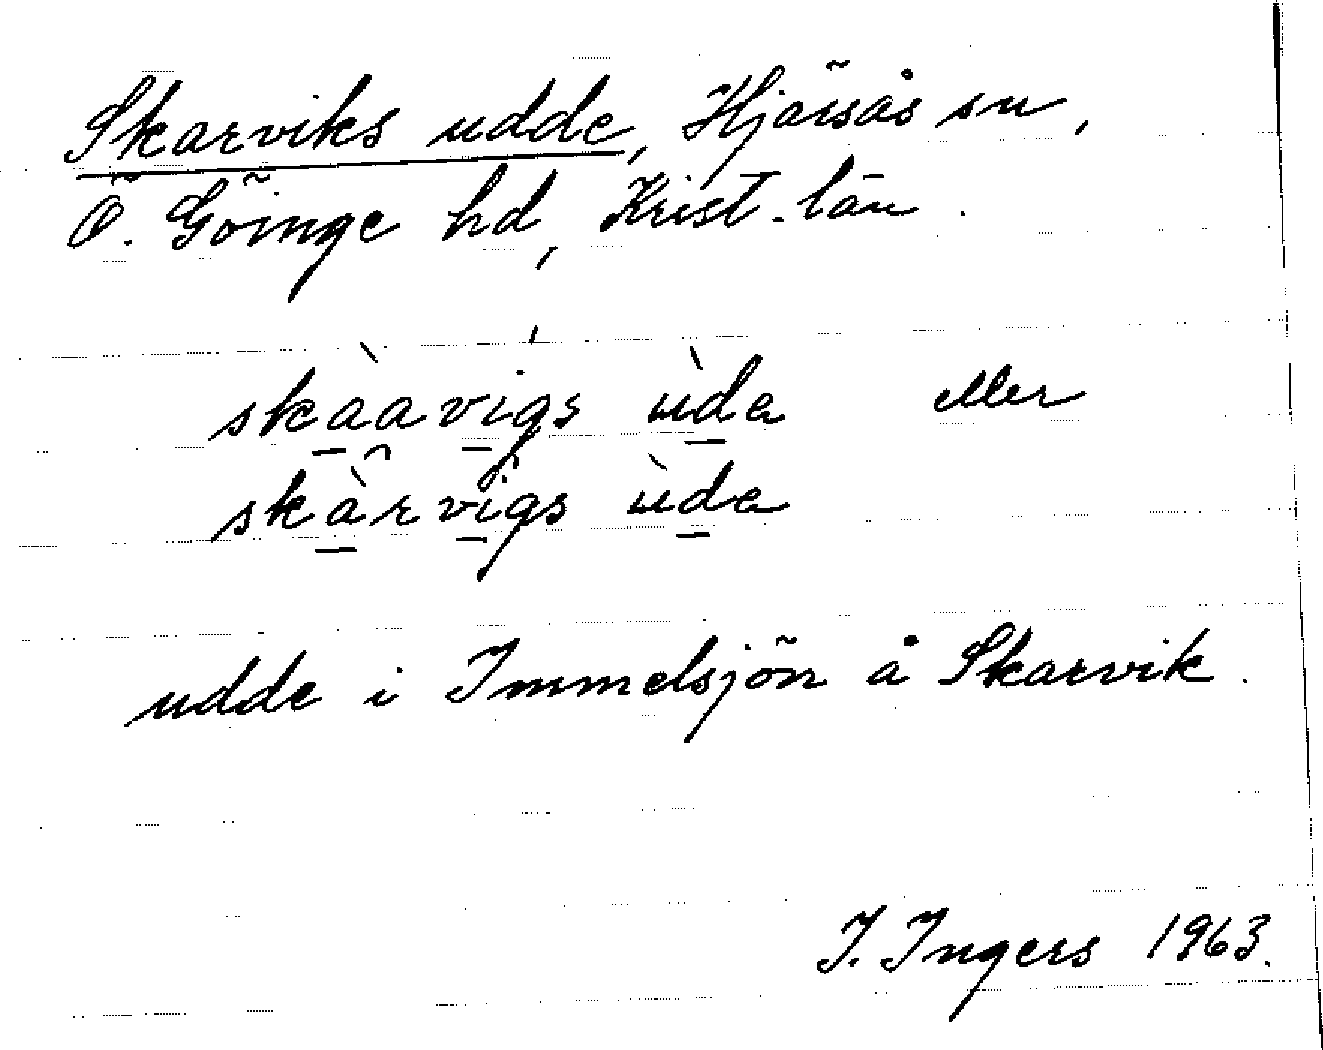 Skarviks udde, Hjärsås sn,
Ö. Göinge hd, Krist. län.
skàavigs ùde eller
skàrvigs ùde
udde i Immelsjön å Skarvik.
I. Ingers 1963.